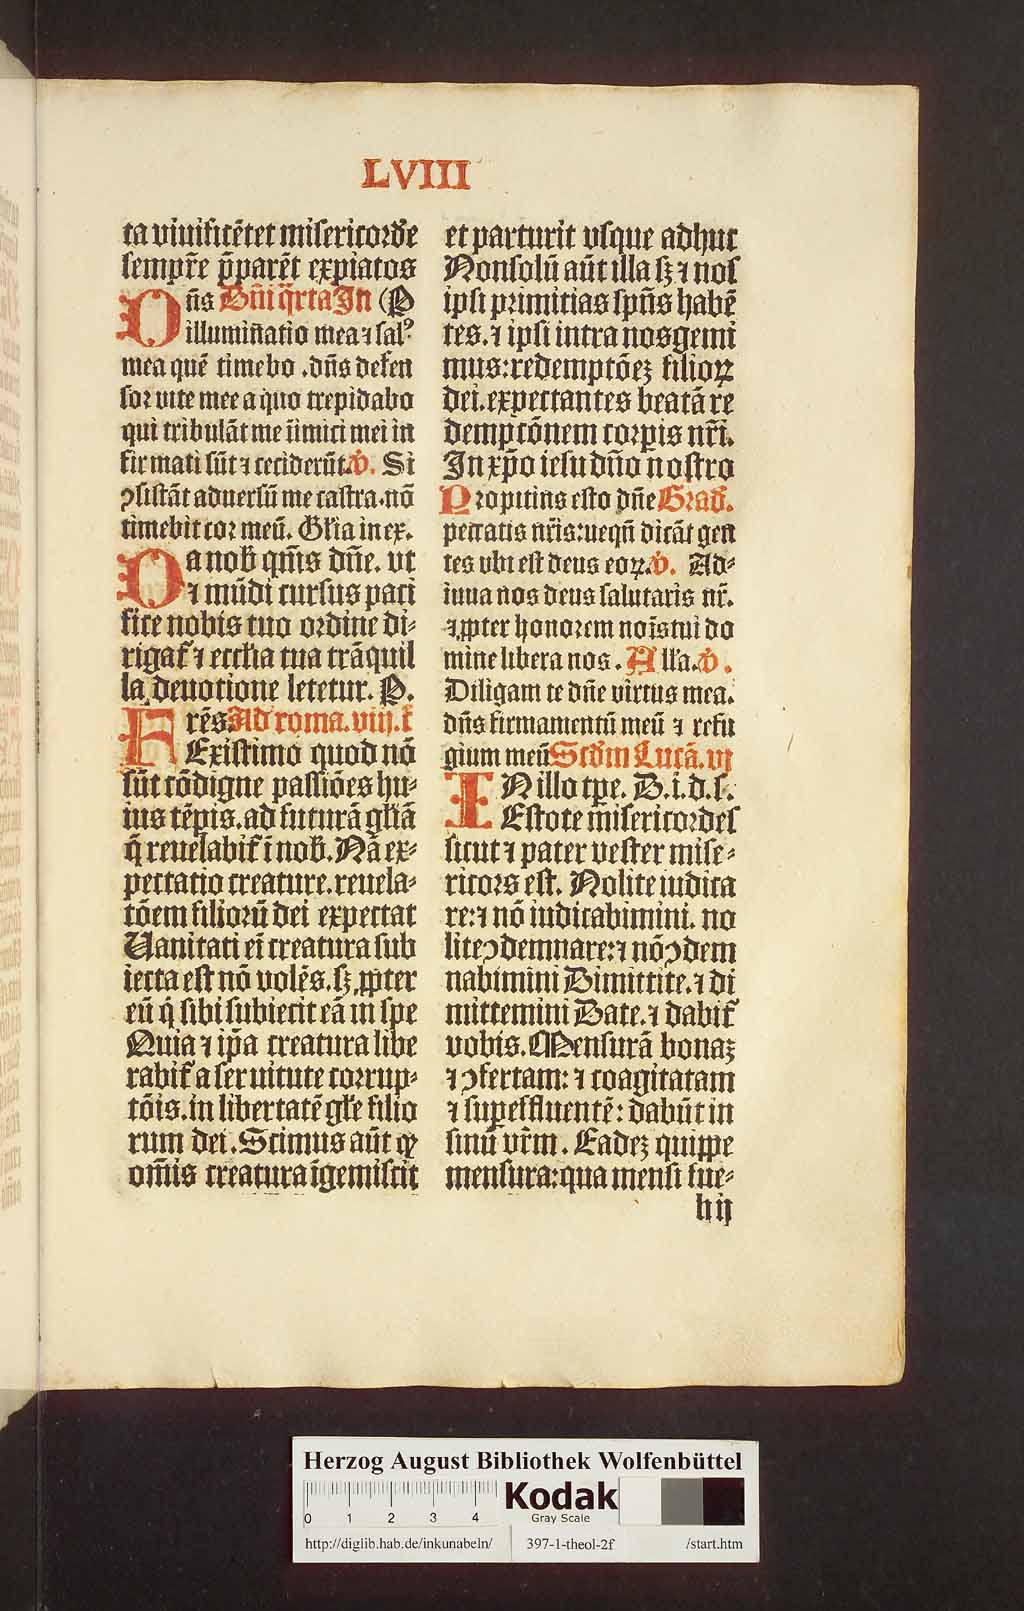 LVIII
ta viuificētet misericorđe
semp̄re p̄parēt expiatos
Dn̄s Dn̄i q̄rta In (P
illumin̄atio mea ⁊ salꝰ
mea quē timebo .dn̄s defen
sor uite mee a quo trepidabo
qui tribulāt me iīmici mei in
firmati sūt ⁊ ceciderūt. v̄. Si
ꝯsistāt aduersū me castra.nō
timebit cor meū. Gl̄ia in ex.
Da nob̄ qm̄s dn̄e. vt
⁊ mūdi cursus paci
fice nobis tuo ordine di⸗
rigat̄ ⁊ eccl̄ia tua trāquil
la deuotione letetur. P.
Frēs. Ad roma. viij. c̄
Existimo quod nō
sūt cōdigne passiōes hu⸗
ius tēpis. ad futurā gl̄iā
q̄ reuelabit̄ ī nob̄. Nā ex⸗
pectatio creature. reuela⸗
tōem filiorū dei expectat
Uanitati ei̅ creatura sub
iecta est nō volēs. sꝫ ꝓpter
eū q̇ sibi subiecit eā in spe
Quia ⁊ ip̄a creatura libe
rabit̄ a seruitute corrup⸗
tōis. in libertatē gl̄e filio
rum dei. Scimus aūt ꝙ
om̄is creatura īgemiscit
et parturit vsque adhuc
Nonsolū aūt illa sꝫ ⁊ nos
ipsi primitias spūs habē
tes. ⁊ ipsi intra nos gemi
mus: redemptōeꝫ filioꝝ
dei. expectantes beatā re
demptōnem corꝑis nr̄i.
In xp̄o iesu dn̄o nostro
Propitius esto dn̄e Grad̄.
peccatis nr̄is: ueqn̄ dicāt gen
tes vbi est deus eoꝝ. v̄. Ad⸗
iuua nos deus salutaris nr̄.
⁊ ꝓpter honorem nōis tui do
mine libera nos. All̄a. v̄.
Diligam te dn̄e virtus mea.
dn̄s firmamentū meū ⁊ refu
gium meū Scd̄m Lucā. vj
IN illo tp̄e. D. i. d. s.
Estote misericordes
sicut ⁊ pater vester mise⸗
ricors est. Nolite iudica
re: ⁊ nō iudicabimini. no
lite ꝯdemnare: ⁊ nō ꝯdem
nabimini Dimittite. ⁊ di
mittemini Date. ⁊ dabit̄
vobis. Mensurā bonaꝫ
⁊ ꝯfertam: ⁊ coagitatam
⁊ suꝑeffluentē: dabūt in
sinū vr̄m. Eadeꝫ quippe
mensura: qua mensi fue⸗
h ij
Herzog August Bibliothek Wolfenbüttel
0 1 2 3 4
Kodak
Gray Scale
http://diglib.hab.de/inkunabeln/ 397-1-theol-2f /start.htm